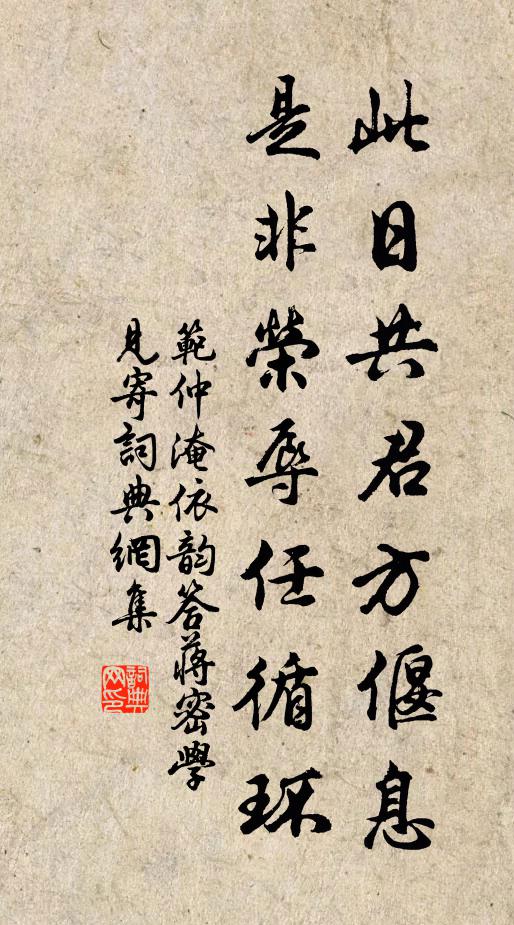 此日共君方偃息
是非榮辱任循环
範仲淹依韵答蔣密學
見寄詞典網集
詞典
网印